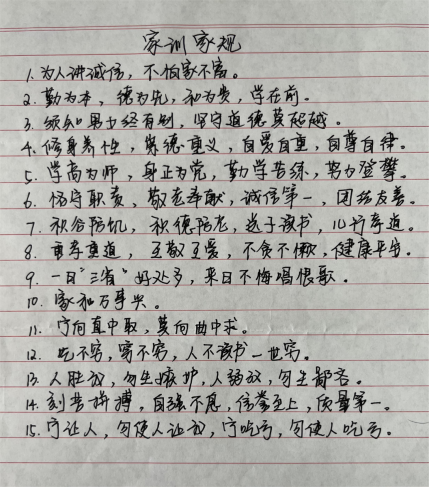 家训家规
1. 为人讲诚信，不怕家不富。
2. 勤为本，德为先，和为贵，学在前。
3. 须知男女终有别，坚守道德莫超越。
4. 修身养性，崇德重义，自爱自重，自尊自律。
5. 学高为师，身正为范，勤学苦练，努力登攀。
6. 恪守职责，敬老奉献，诚信第一，团结友善。
7. 积谷防饥，积德防老，送子读书，儿行孝道。
8. 重孝重道，互敬互爱，不贪不懒，健康平安。
9. 一日“三省”好处多，来日不悔唱恨歌。
10. 家和万事兴。
11. 宁向直中取，莫向曲中求。
12. 吃不穷，穿不穷，人不读书一世穷。
13. 人胜我，勿生嫉妒，人弱我，勿生鄙吝。
14. 刻苦拼搏，自强不息，信誉至上，质量第一。
15. 宁让人，勿使人让我，宁吃亏，勿使人吃亏。